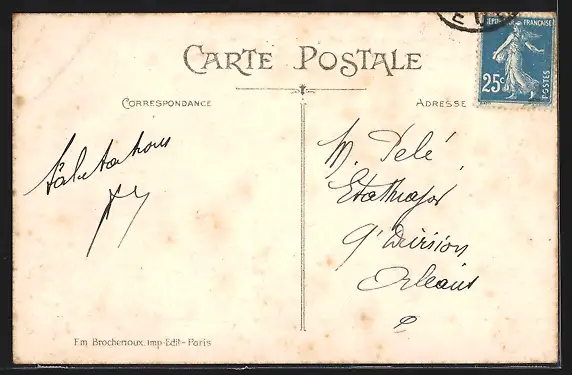 CARTE POSTALE
CORRESPONDANCE
ADRESSE
RÉPUBLIQUE FRANÇAISE
25c
POSTES
Salutations
M. Pelé
Etat Major
9e Division
Orléans
Em Brocherioux, Imp-Edit-Paris